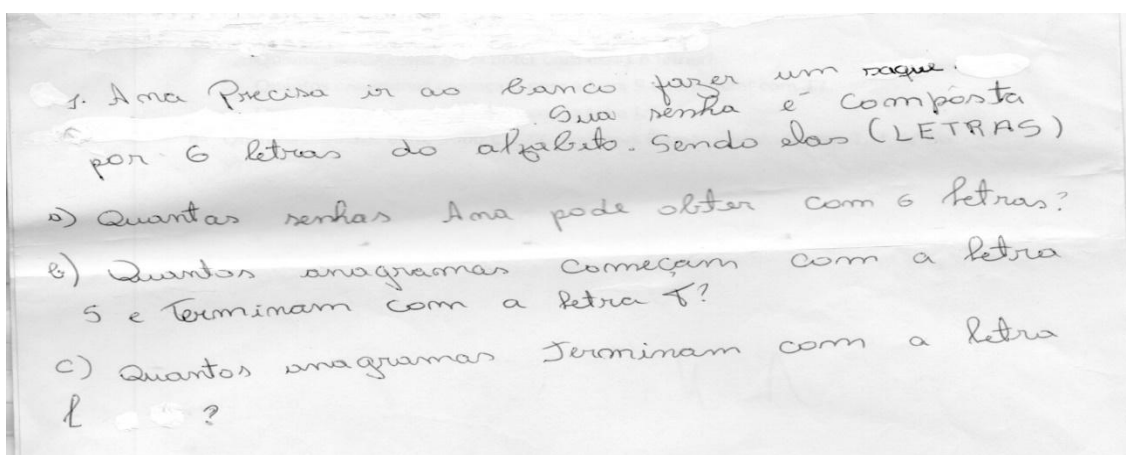 1. Ana Precisa ir ao banco fazer um saque.
Sua senha é composta
por 6 letras do alfabeto. Sendo elas (LETRAS)
a) Quantas senhas Ana pode obter com 6 letras?
b) Quantos anagramas começam com a letra
S e Terminam com a letra T?
c) Quantos anagramas Terminam com a letra
l ?